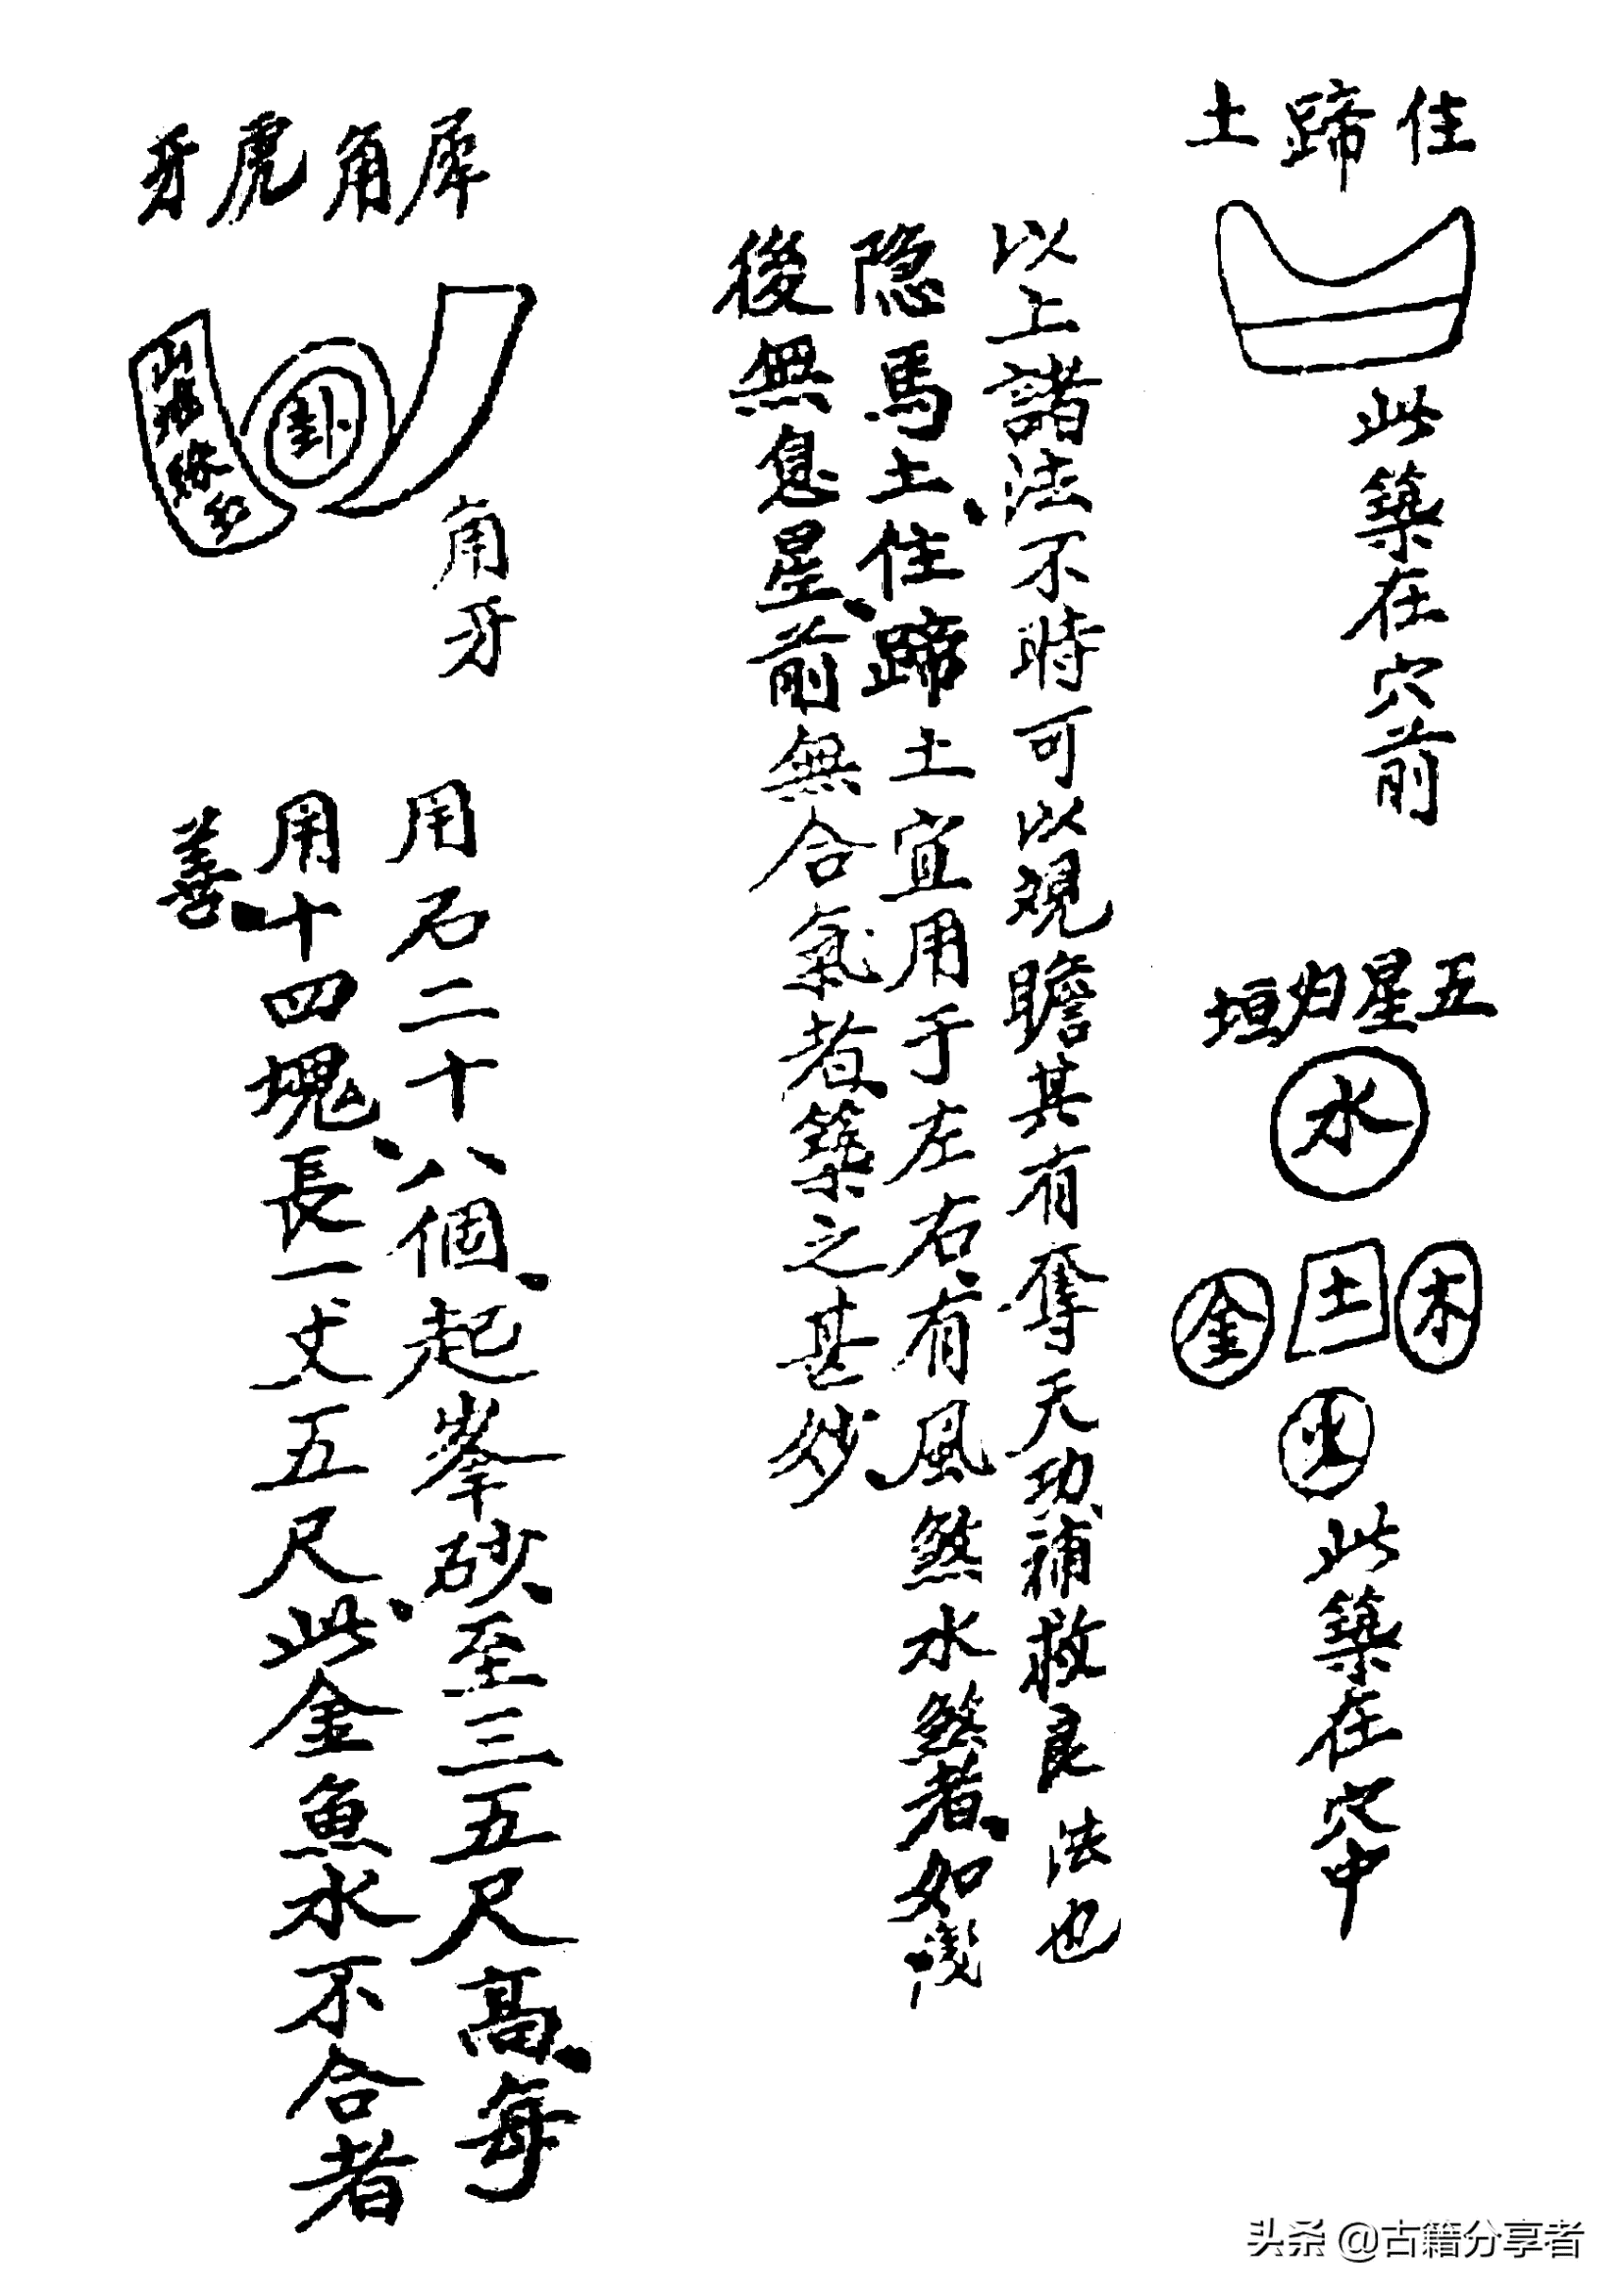 住蹄土
此築在穴前
五星归垣
水
木
土
金
火
此築在穴中
以上諸法不時可以观瞻其有奪天功補救良法也
隐馬土、住蹄土宜用于左右、有風煞水煞者、如
後無息星、前無合氣者、築之甚妙
犀角虎牙
卦
角牙
用石二十八個、起峯砂、至三五尺高、每
用十四塊、長一丈五尺、此金魚水不合者
善
头条 @古籍分享者